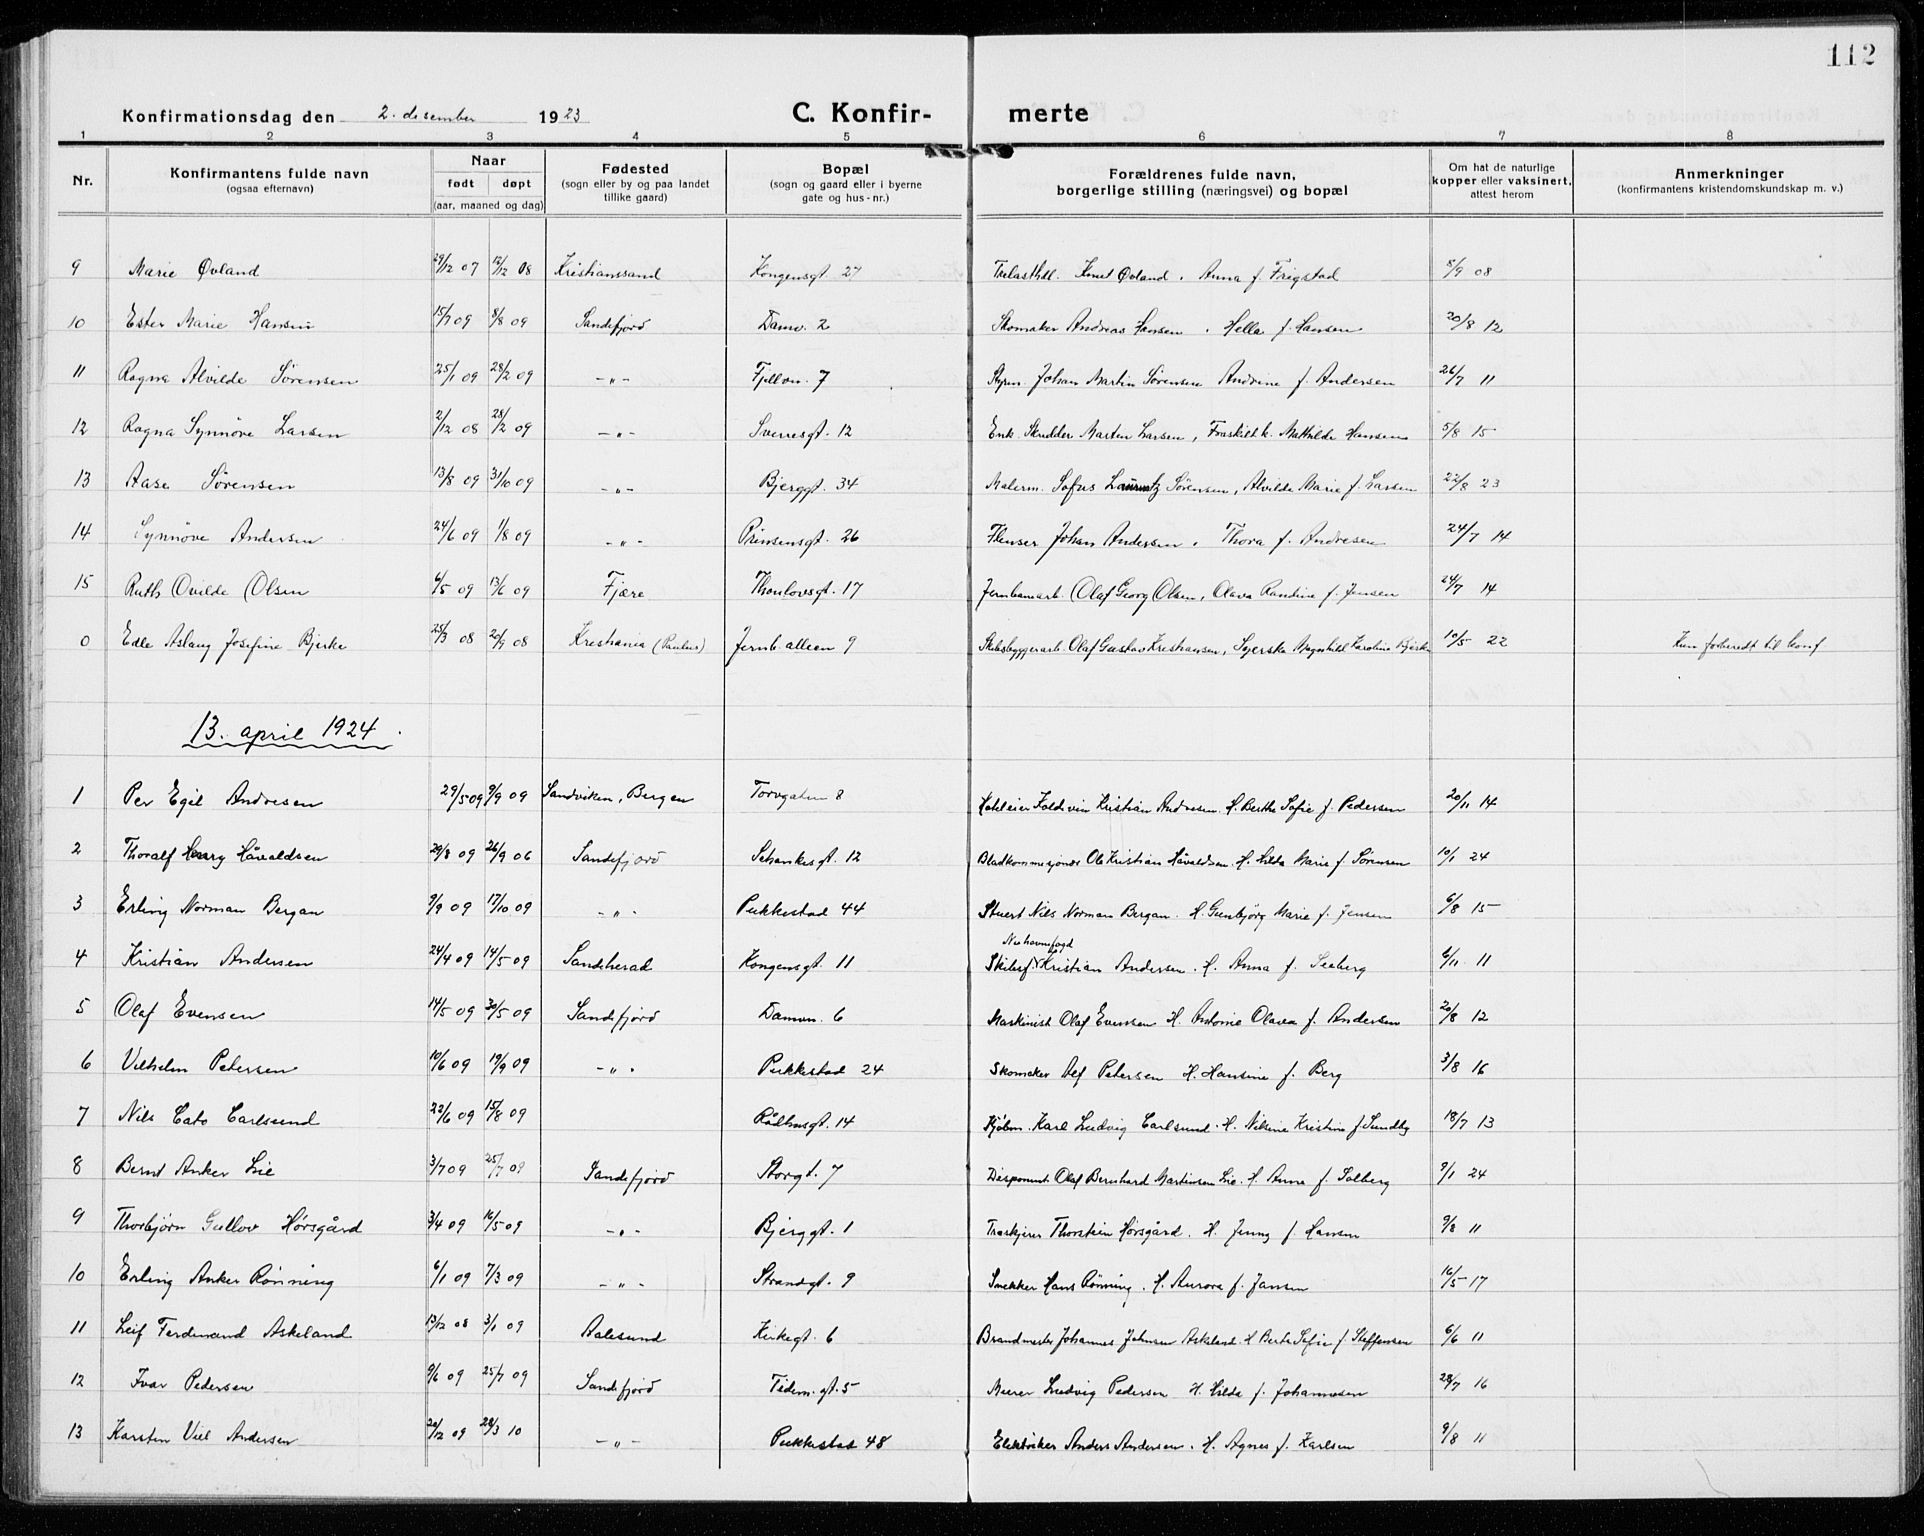 112
Konfirmationsdag den 2. desember 1923 C. Konfir- merte
1 2 3 4 5 6 7 8
Nr. Konfirmantens fulde navn (ogsaa efternavn) Naar født døpt (aar, maaned og dag) Fødested (sogn eller by og paa landet tillike gaard) Bopæl (sogn og gaard eller i byerne gate og hus-nr.) Forældrenes fulde navn, borgerlige stilling (næringsvei) og bopæl Om hat de naturlige kopper eller vaksinert, attest herom Anmerkninger (konfirmantens kristendomskundskap m. v.)
9 Marie Øvland 29/12 07 12/12 08 Kristianssand Kongensgt. 27 Trelasthdl. Knut Øvland. Anna f. Frigstad 8/9 08
10 Ester Marie Hansen 15/7 09 8/8 09 Sandefjord Damv. 2 Skomaker Andreas Hansen. Hella f. Hansen 20/8 12
11 Ragna Alvilde Sørensen 25/1 09 28/2 09 -"- Fjellvn. 7 Styrm. Johan Martin Sørensen Andrine f. Andersen 26/7 11
12 Ragna Synnöve Larsen 2/12 08 28/2 09 -"- Sverresgt. 12 Enk. Skredder Marten Larsen, Fraskilt h. Mathilde Hansen 5/8 15
13 Aase Sörensen 13/8 09 31/10 09 -"- Bjerggt. 34 Malerm. Sofus Lauritz Sørensen, Alvilde Marie f. Larsen 22/8 23
14 Synnöve Andersen 24/6 09 1/8 09 -"- Prinsensgt. 26 Flenser Johan Andersen. Thora f. Andresen 24/7 14
15 Ruth Ovilde Olsen 6/5 09 13/6 09 Fjære Thaulovsgt. 17 Jernbanearb. Olaf Georg Olsen, Olava Randine f. Jensen 24/7 14
0 Edle Aslaug Josefine Bjerke 25/3 08 20/9 08 Kristiania (Paulus) Jernb. alleen 9 Skibsbyggerarb. Olaf Gustav Kristiansen, Syerske Magnhild Karoline Bjerke 10/5 22 Kun forberedt til konf
13. april 1924.
1 Per Egil Andresen 29/5 09 9/9 09 Sandviken, Bergen Torvgaten 8 Hoteleier Foldvin Kristian Andresen. H. Berthe Sofie f. Pedersen 20/11 14
2 Thoralf Henry Håvaldsen 29/8 09 26/9 06 Sandefjord Schankesgt. 12 Bladkommisjonær Ole Kristian Håvaldsen. H. Hilda Marie f. Sørensen 10/1 24
3 Erling Norman Bergan 9/9 09 17/10 09 -"- Pukkestad 44 Stuert Nils Norman Bergan. H. Gunbjörg Marie f. Jensen 6/8 15
4 Kristian Andersen 24/4 09 14/5 09 Sandeherad Kongensgt. 11 Skibsf. Kristian Andersen. H. Anna f. Seeberg 6/11 11
5 Olaf Evensen 14/5 09 30/5 09 Sandefjord Damvn. 6 Maskinist Olaf Evensen H. Antonie Olava f. Andersen 20/8 12
6 Vilhelm Petersen 10/6 09 19/9 09 -"- Pukkestad 24 Skomaker Alf Petersen H. Hansine f. Berg 3/8 16
7 Nils Cato Carlsund 22/6 09 15/8 09 Rådhusgt. 14 Kjøbm. Karl Ludvig Carlsund. H. Nilsine Kristine f. Sundby 18/7 13
8 Bernt Anker Lie 3/7 09 25/7 09 Sandefjord Storgt. 7 Disponent Olaf Bernhard Martinsen Lie. H. Anna f. Solberg 9/1 24
9 Thorbjörn Gullov Hørsgård 3/4 09 16/5 09 -"- Bjerggt. 1 Trankjører Thorstein Hørsgård. H. Jenny f. Hansen 9/8 11
10 Erling Anker Rönning 6/1 09 7/3 09 -"- Strandgt. 9 Snekker Hans Rönning. H. Aurora f. Jansen 16/5 17
11 Leif Ferdinand Askeland 13/12 08 3/1 09 Aalesund Kirkegt. 6 Brandmester Johannes Johnsen Askeland H. Berta Sofie f. Steffensen 6/6 11
12 Ivar Pedersen 9/6 09 25/7 09 Sandefjord Tidem.gt. 5 Murer Ludvig Pedersen H. Hilda f. Johannesen 28/7 16
13 Karsten Viel Andersen 20/12 09 28/3 10 -"- Pukkestad 48 Elektriker Anders Andersen. H. Agnes f. Karlsen 9/8 11